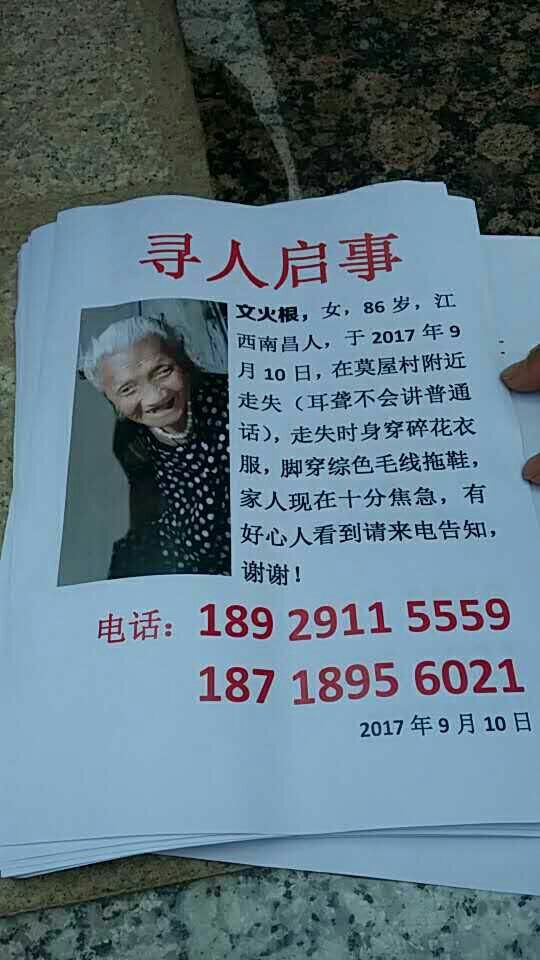 寻人启事
文火根，女，86 岁，江
西南昌人，于 2017 年 9
月 10 日，在莫屋村附近
走失（耳聋不会讲普通
话），走失时身穿碎花衣
服，脚穿综色毛线拖鞋，
家人现在十分焦急，有
好心人看到请来电告知，
谢谢！
电话：189 2911 5559
187 1895 6021
2017 年 9 月 10 日